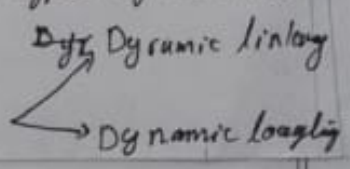 Dynamic linking
Dynamic loading